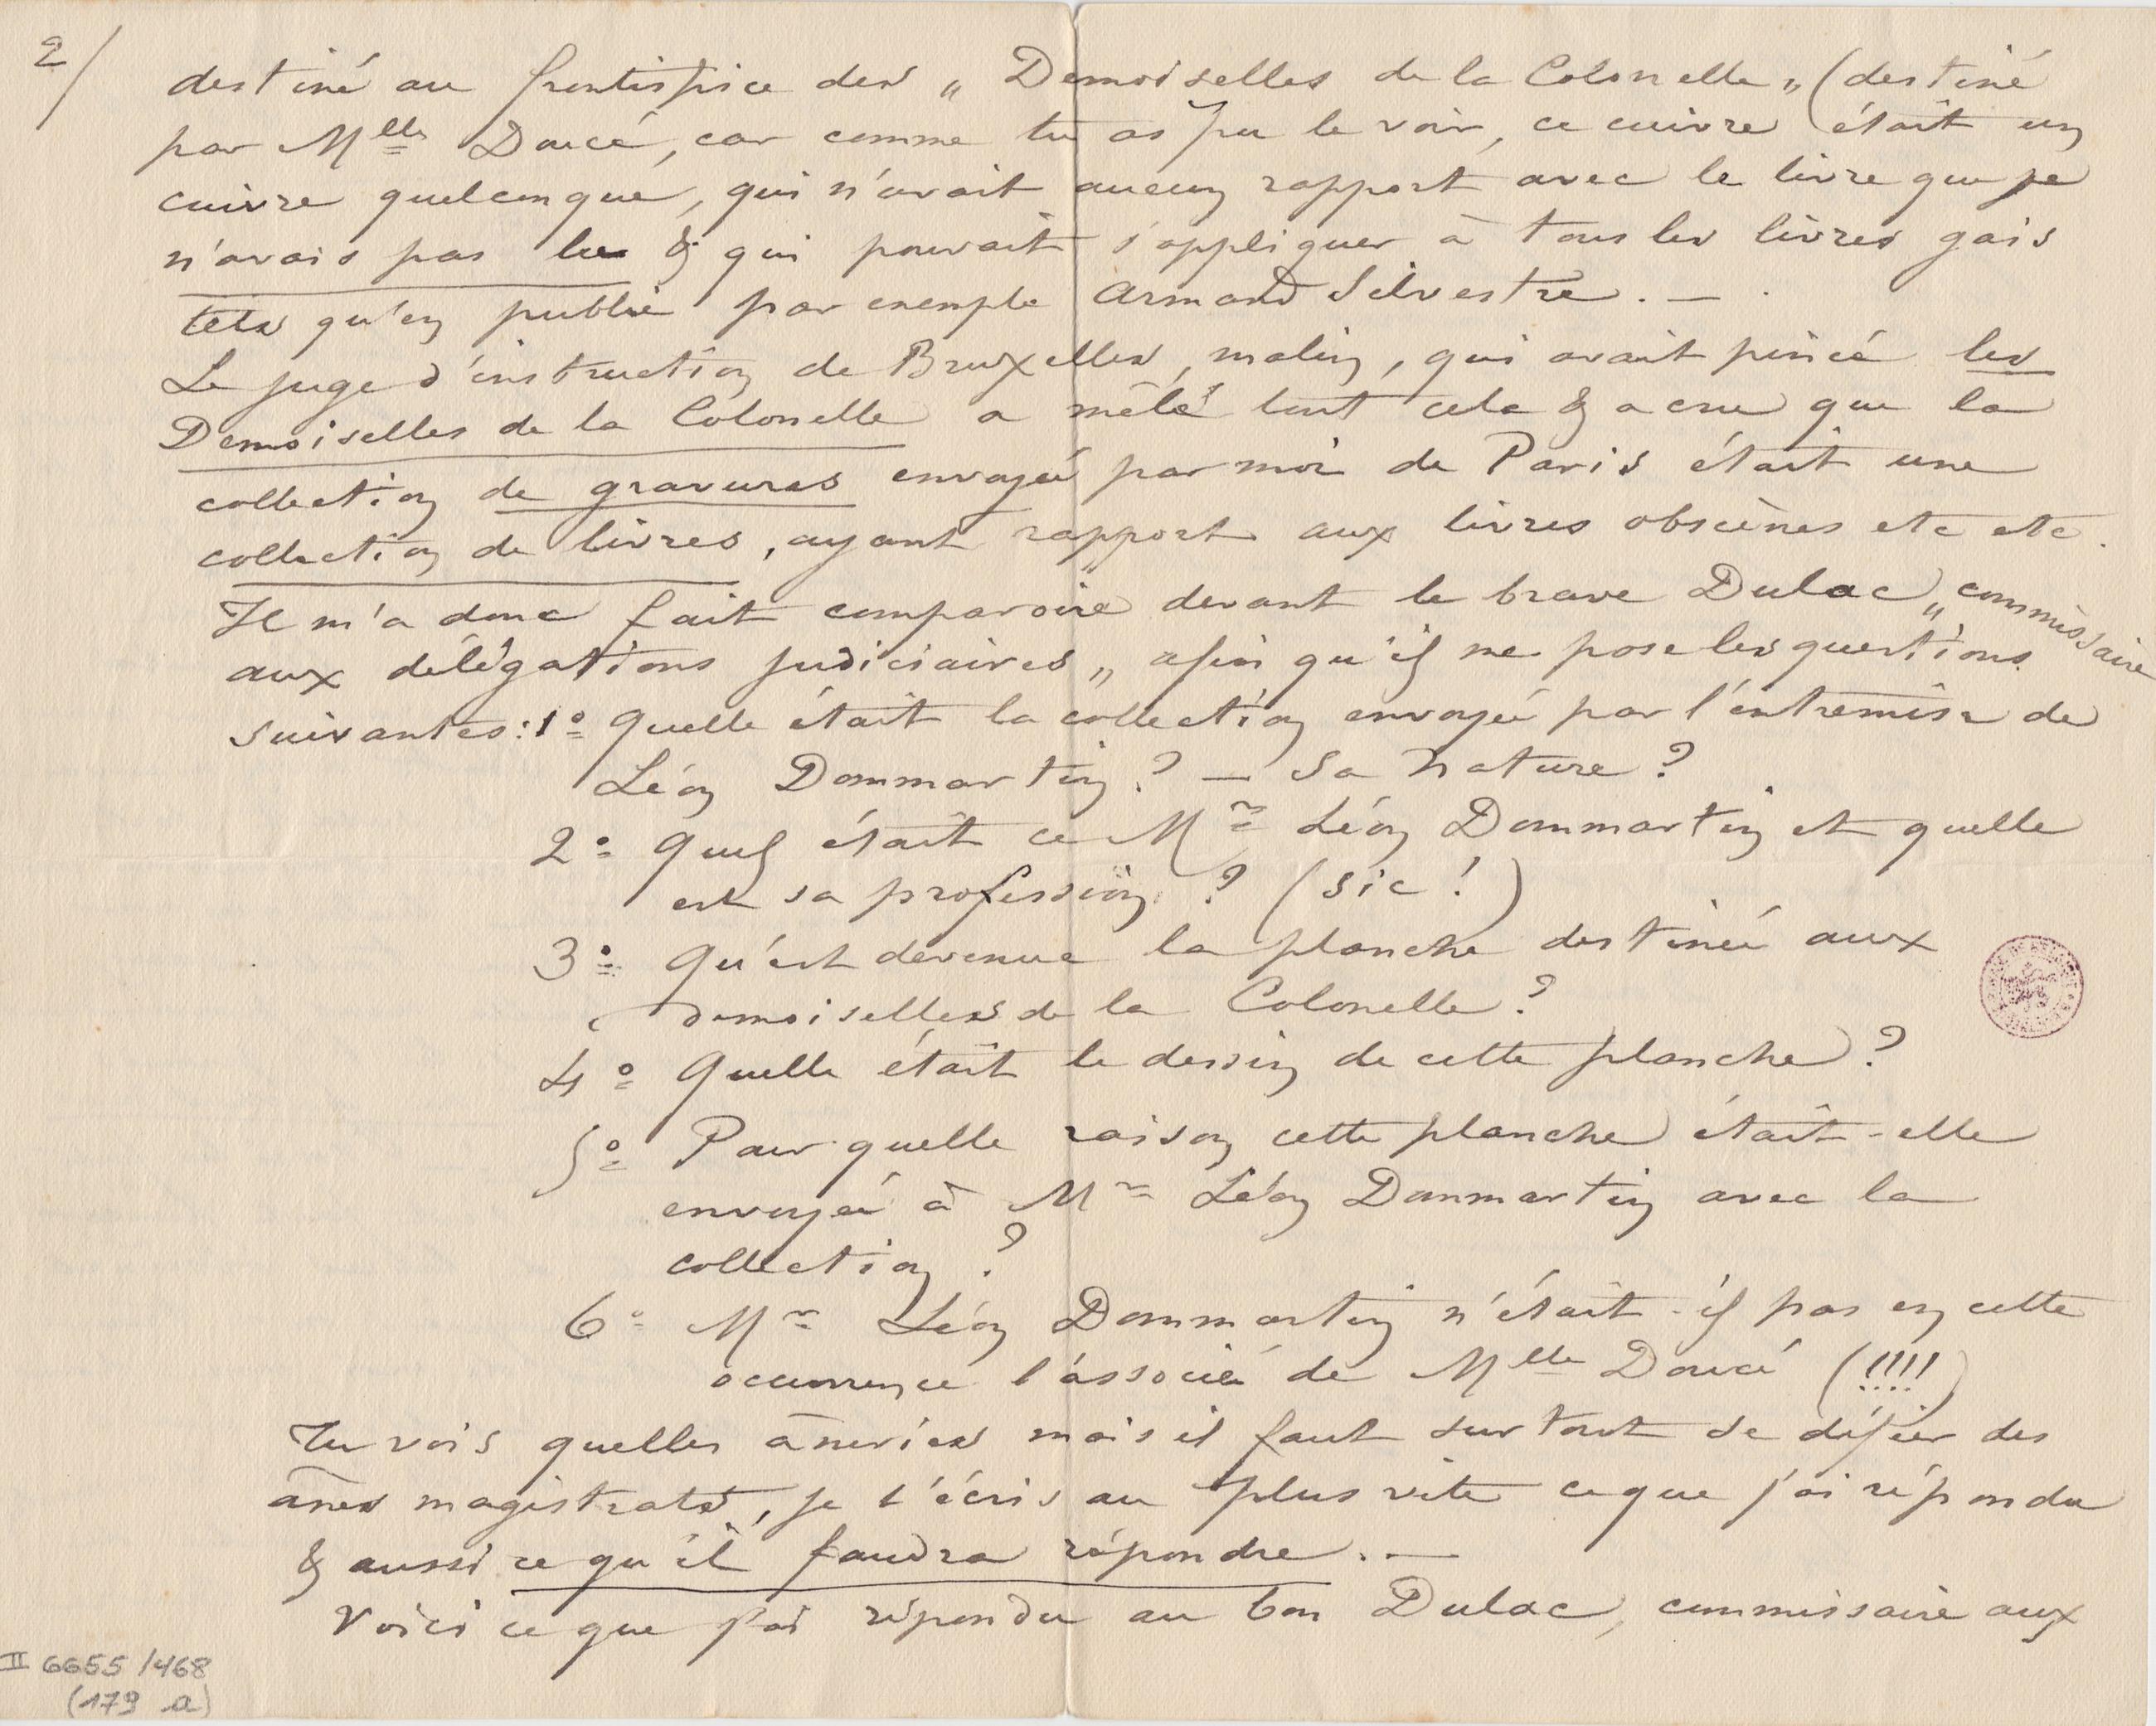 2/
destiné au frontispice des „ Demoiselles de la Colonelle „ (destiné
par Mlle Doucé, car comme tu as pu le voir, ce cuivre était un
cuivre quelconque, qui n'avait aucun rapport avec le livre que je
n'avais pas lu & qui pouvait s'appliquer à tous les livres gais
tels qu'en publie par exemple Armand Silvestre. — .
Le juge d'instruction de Bruxelles, malin, qui avait pincé les
Demoiselles de la Colonelle a mêlé tout cela & a cru que la
collection de gravures envoyée par moi de Paris était une
collection de livres, ayant rapport aux livres obscènes etc etc.
Il m'a donc fait comparoire devant le brave Dulac „ commissaire
aux délégations judiciaires „ afin qu'il me pose les questions
suivantes : 1º Quelle était la collection envoyée par l'entremise de
Léon Dommartin ? — Sa nature ?
2º Quel était ce Mr Léon Dommartin et quelle
est sa profession ? (sic !)
3º Qu'est devenue la planche destinée aux
demoiselles de la Colonelle ?
4º Quelle était le dessin de cette planche ?
5º Pour quelle raison cette planche était-elle
envoyée à Mr Léon Dommartin avec la
collection ?
6º Mr Léon Dommartin n'était-il pas en cette
occurrence l'associé de Mlle Doucé (!!!!)
Tu vois quelles âneries mais il faut surtout se défier des
ânes magistrats, je t'écris au plus vite ce que j'ai répondu
& aussi ce qu'il faudra répondre. —
Voici ce que j'ai répondu au bon Dulac, commissaire aux
II 6655/468
(179 a)